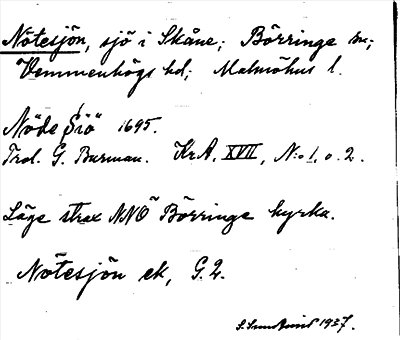 Nötesjön, sjö i Skåne; Börringe sn;
Vemmenhögs hd; Malmöhus l.
Nöde Siö 1695.
Trol. G. Burman. KrA, XVII, N:o 1, o. 2.
Läge strax NNO Börringe kyrka.
Nötesjön ek, G.2.
1937.